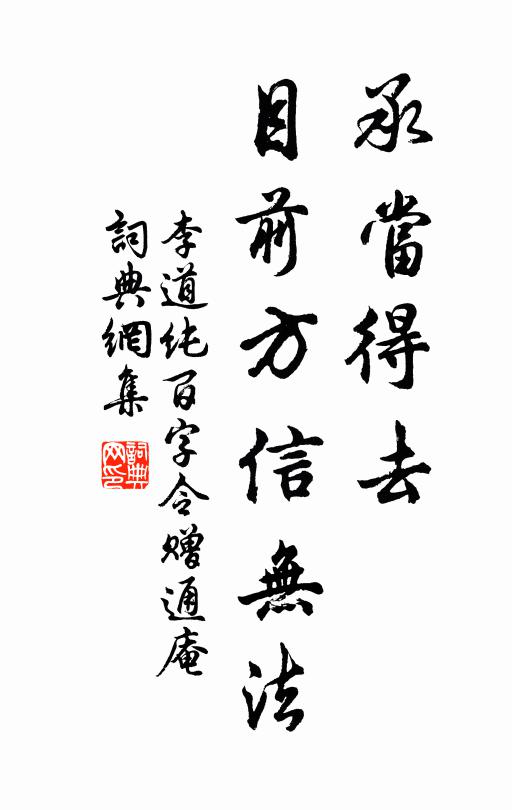 承當得去
目前方信無法
李道純百字令贈通庵
詞典網集
詞典网印